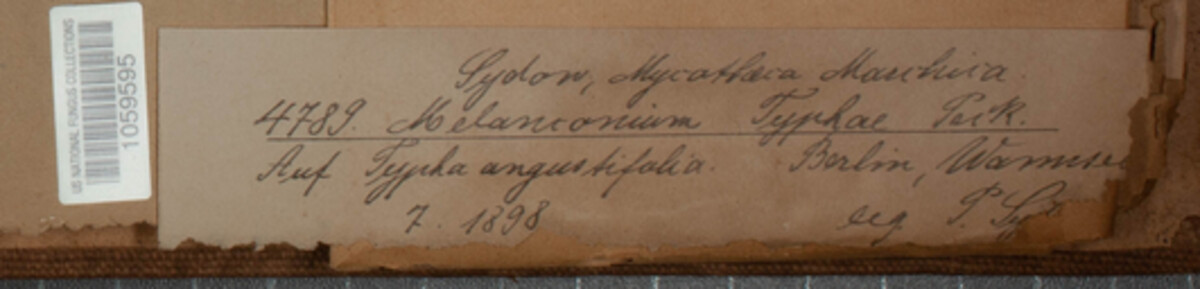 US NATIONAL FUNGUS COLLECTIONS
1059595
Sydow, Mycotheca Marchica.
4789. Melanconium Typhae Peck.
Auf Typha angustifolia. Berlin, Wannsee
7. 1898 leg. P. Sy